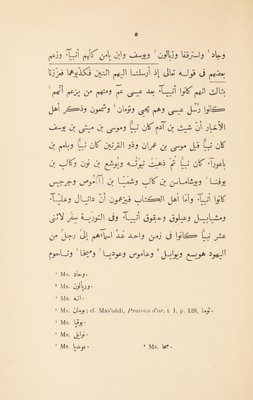 ٥
وجاد¹ واسترفقا وزبالون² ويوسف وابن يامن كلّهم أنبيآء وزعم
بعضهم فى قولـه تعالى إذ أرسلنـا اليهم اثنين فكذّبوهما فعزّزنا
بثالث انهم كانوا أنبيـآء بعد عيسى عمّ ومنهم من يزعم أنّهم³
كانوا رُسُل عيسى وهم يحيى وتومان⁴ وشمعون وذكر أهل
الأخبار أنّ شيث بن آدم كان نبيًّا وموسى بن ميشى بن يوسف
كان نبيًّا قبل موسى بن عمران وذو القرنين كان نبيًّا وبلعم بن
باعورآء كان نبيًّا ثمّ ذهبتْ نبوّته ويُوشع بن نون وكالب بن
يوفنـا⁵ وبوشاماسن بن كالب وشَمْيَـا بن
كانوا أنبيآء وأمّا أهل الكتاب فيزعمون أنّ دانيال وعلياء
ومشياييل وعيلوق وحبقوق أنبيـآء وفى التوريـة سِفر لاثنى
عشر نبيًّا كانوا فى زمن واحـد عدّ اسمآءهم إلىّ رجل من
اليهود هويسع ويوايل⁶ وعاموس وعوديـا⁷ وميخا⁸ وناحوم
¹ Ms. وحاد.
² Ms. وربالون.
³ Ms. انـه.
⁴ Ms. تومان; cf. Mas'oûdi, Prairies d'or, t. I, p. 128, توما.
⁵ Ms. بوقيا.
⁶ Ms. نوايل.
⁷ Ms. عونديا.
⁸ Ms. منحا.